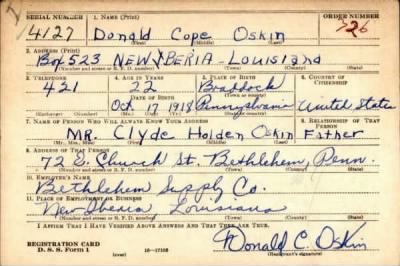 SERIAL NUMBER 1. NAME (Print) ORDER NUMBER
4127 Donald Cope Oskin 726
(First) (Middle) (Last)
2. ADDRESS (Print)
Box 523 NEW IBERIA - LOUISIANA
(Number and street or R. F. D. number) (Town) (County) (State)
3. TELEPHONE 4. AGE IN YEARS 5. PLACE OF BIRTH 6. COUNTRY OF CITIZENSHIP
421 22 Braddock
DATE OF BIRTH (Town or county)
Oct 1918 Pennsylvania United States
(Exchange) (Number) (Mo.) (Day) (Yr.) (State or country)
7. NAME OF PERSON WHO WILL ALWAYS KNOW YOUR ADDRESS 8. RELATIONSHIP OF THAT PERSON
MR. Clyde Holden Oskin Father
(Mr., Mrs., Miss) (First) (Middle) (Last)
9. ADDRESS OF THAT PERSON
72 E. Church St. Bethlehem, Penn.
(Number and street or R. F. D. number) (Town) (County) (State)
10. EMPLOYER'S NAME
Bethlehem Supply Co.
11. PLACE OF EMPLOYMENT OR BUSINESS
New Iberia Louisiana
(Number and street or R. F. D. number) (Town) (County) (State)
I AFFIRM THAT I HAVE VERIFIED ABOVE ANSWERS AND THAT THEY ARE TRUE.
REGISTRATION CARD
D. S. S. Form 1 (over) 16-17105
Donald C. Oskin
(Registrant's signature)